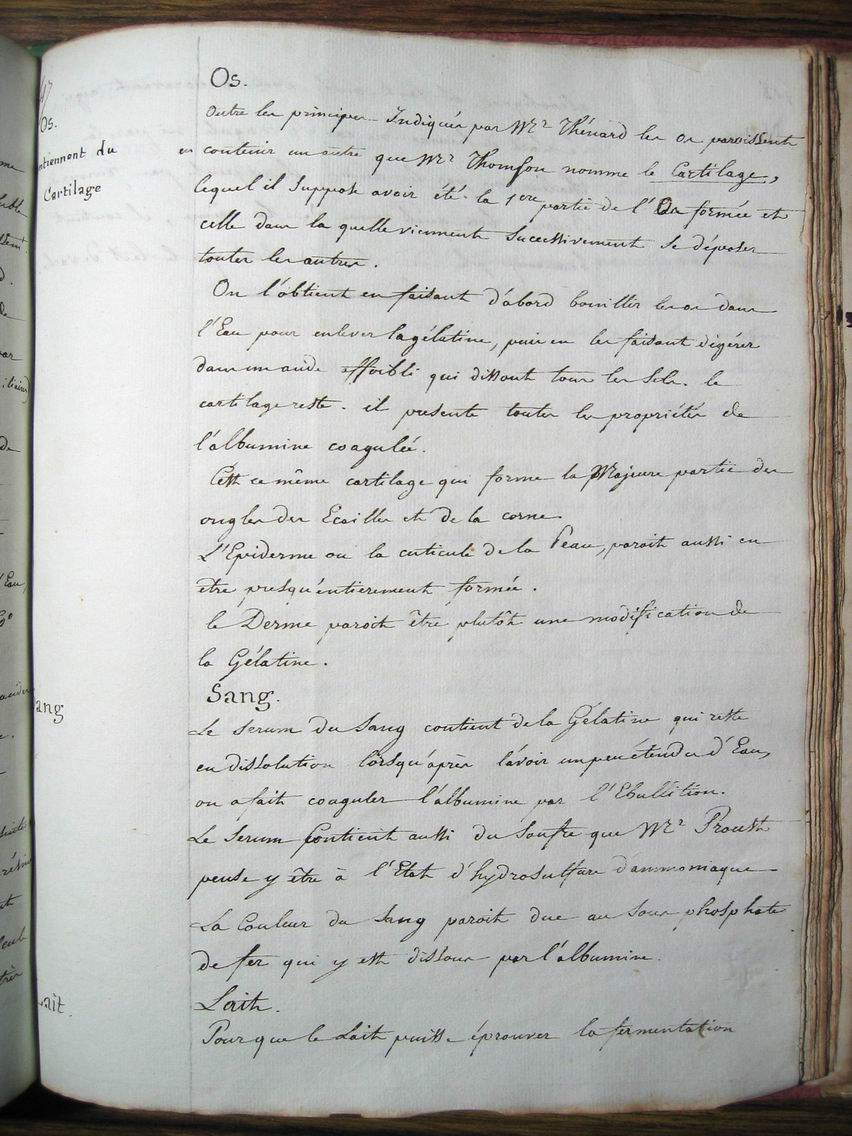 Os.
Outre les principes Indiqués par Mr Thénard les os paroissent
en contenir un autre que Mr Thomson nomme le Cartilage,
lequel il Suppose avoir été la 1ere partie de l'Os formée et
celle dans la quelle viennent Successivement se déposer
toutes les autres.
On l'obtient en faisant d'abord bouillir les os dans
l'Eau pour enlever la gélatine, puis en les faisant digérer
dans un acide affoibli qui dissout tous les Sels. le
cartilage reste. il présente toutes les propriétés de
l'albumine coagulée.
C'est ce même cartilage qui forme la Majeure partie des
ongles des Ecailles et de la corne
L'Epiderme ou la cuticule de la Peau, paroit aussi en
être presqu'entierement formée.
le Derme paroit être plutôt une modification de
la Gélatine.
Sang.
Le serum du Sang contient de la Gélatine qui reste
en dissolution lorsqu'après l'avoir un peu étendu d'Eau,
on a fait coaguler l'albumine par l'Ebullition.
Le Serum Contient aussi du Soufre que Mr Proust
pense y être à l'Etat d'hydrosulfure d'ammoniaque
La Couleur du Sang paroit due au Sous phosphate
de fer qui y est dissous par l'albumine.
Lait.
Pour que le Lait puisse éprouver la fermentation
Os.
contiennent du
Cartilage
Sang
Lait.